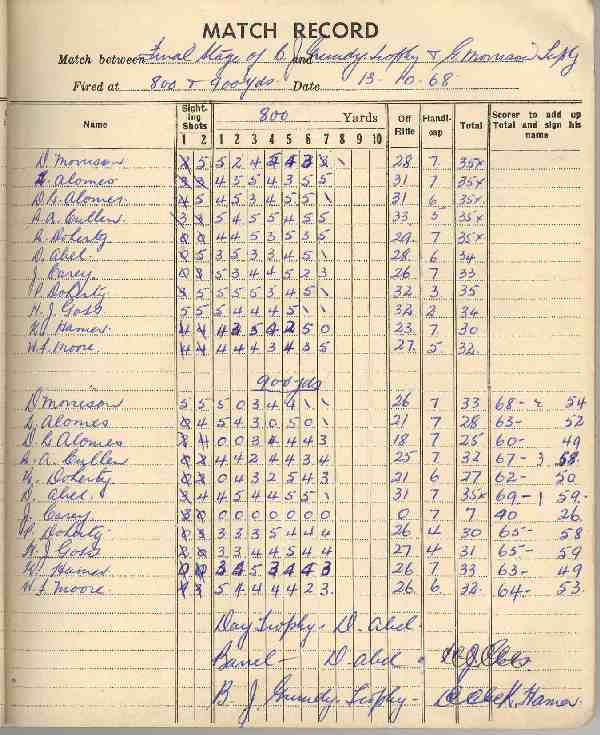 MATCH RECORD
Match between Final Stage of B. J. Grundy Trophy and G. Morrison Trophy
Fired at 800 & 900yds Date 13-10-68
Name Sighting Shots 800 Yards Off Rifle Handicap Total Scorer to add up Total and sign his name
1 2 1 2 3 4 5 6 7 8 9 10
D. Morrison 5 5 2 4 28 7 35x
Alomes 4 5 5 4 3 5 5 31 7 35x
D. G. Alomes 5 4 5 3 4 5 5 31 6 35x
A. A. Cullen 5 4 5 5 4 5 5 33 5 35x
Doherty 4 4 5 3 5 3 5 29 7 35x
D. Abel 5 3 5 3 3 4 5 28 6 34
J. Carey 5 3 4 4 5 2 3 26 7 33
P. Doherty 5 5 5 5 3 4 5 32 3 35
H. J. Goss 5 5 5 4 4 4 5 32 2 34
Hamer 5 0 23 7 30
W. L. Moore 4 4 4 3 4 3 5 27 5 32
900yds
D Morrison 5 5 5 0 3 4 4 26 7 33 68- 54
Alomes 4 5 4 3 0 5 0 21 7 28 63- 52
D G Alomes 0 0 3 4 4 4 3 18 7 25 60- 49
A. A. Cullen 4 4 2 4 4 3 4 25 7 32 67- 58
Doherty 0 4 3 2 5 4 3 21 6 27 62- 50
D. Abel 4 4 5 4 4 5 5 31 7 35x 69- 59
J. Carey 0 0 0 0 0 0 0 0 7 7 40 26
P. Doherty 3 3 3 5 4 4 4 26 4 30 65- 58
H. J. Goss 3 3 4 4 5 4 4 27 4 31 65- 59
Hamer 3 4 5 3 4 4 3 26 7 33 63- 49
W L Moore 5 4 4 4 2 3 26 6 32 64- 53
Day Trophy - D. Abel
Barrel - D. Abel
B. J Grundy Trophy - Hamer